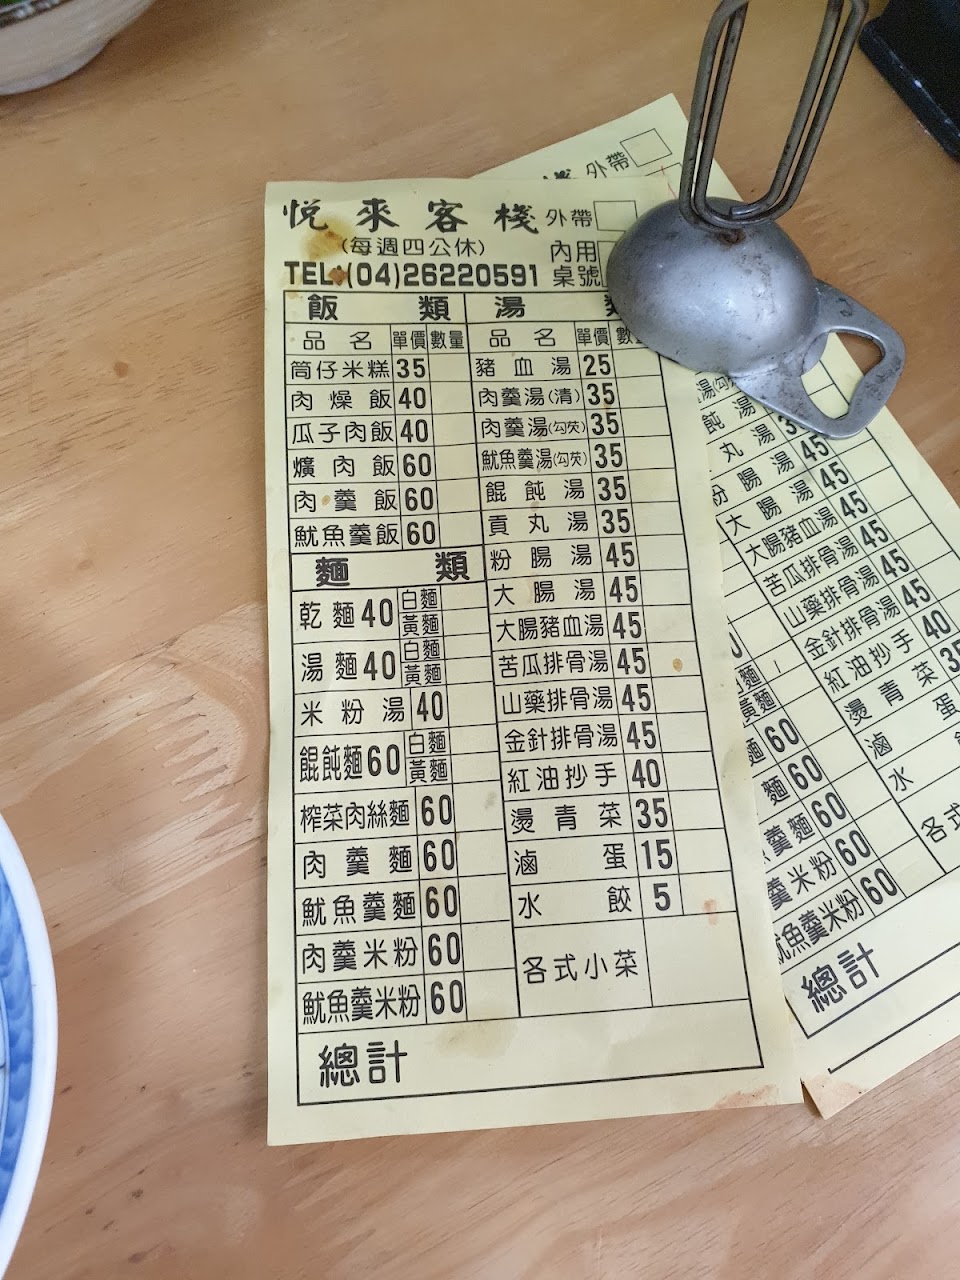 悅來客棧 外帶
(每週四公休) 內用
TEL:(04)26220591 桌號
飯類
品名 單價 數量
筒仔米糕 35
肉燥飯 40
瓜子肉飯 40
爌肉飯 60
肉羹飯 60
魷魚羹飯 60
麵類
乾麵 40 白麵 黃麵
湯麵 40 白麵 黃麵
米粉湯 40
餛飩麵 60 白麵 黃麵
榨菜肉絲麵 60
肉羹麵 60
魷魚羹麵 60
肉羹米粉 60
魷魚羹米粉 60
湯
品名 單價 數
豬血湯 25
肉羹湯(清) 35
肉羹湯(勾芡) 35
魷魚羹湯(勾芡) 35
餛飩湯 35
貢丸湯 35
粉腸湯 45
大腸湯 45
大腸豬血湯 45
苦瓜排骨湯 45
山藥排骨湯 45
金針排骨湯 45
紅油抄手 40
燙青菜 35
滷蛋 15
水餃 5
各式小菜
總計
外帶
飩湯
丸湯
粉腸湯 45
大腸湯 45
大腸豬血湯 45
苦瓜排骨湯 45
山藥排骨湯 45
金針排骨湯 45
紅油抄手 40
燙青菜
滷蛋
水
各式
黃麵
麵 60
麵 60
羹麵 60
羹米粉 60
魷魚羹米粉 60
總計